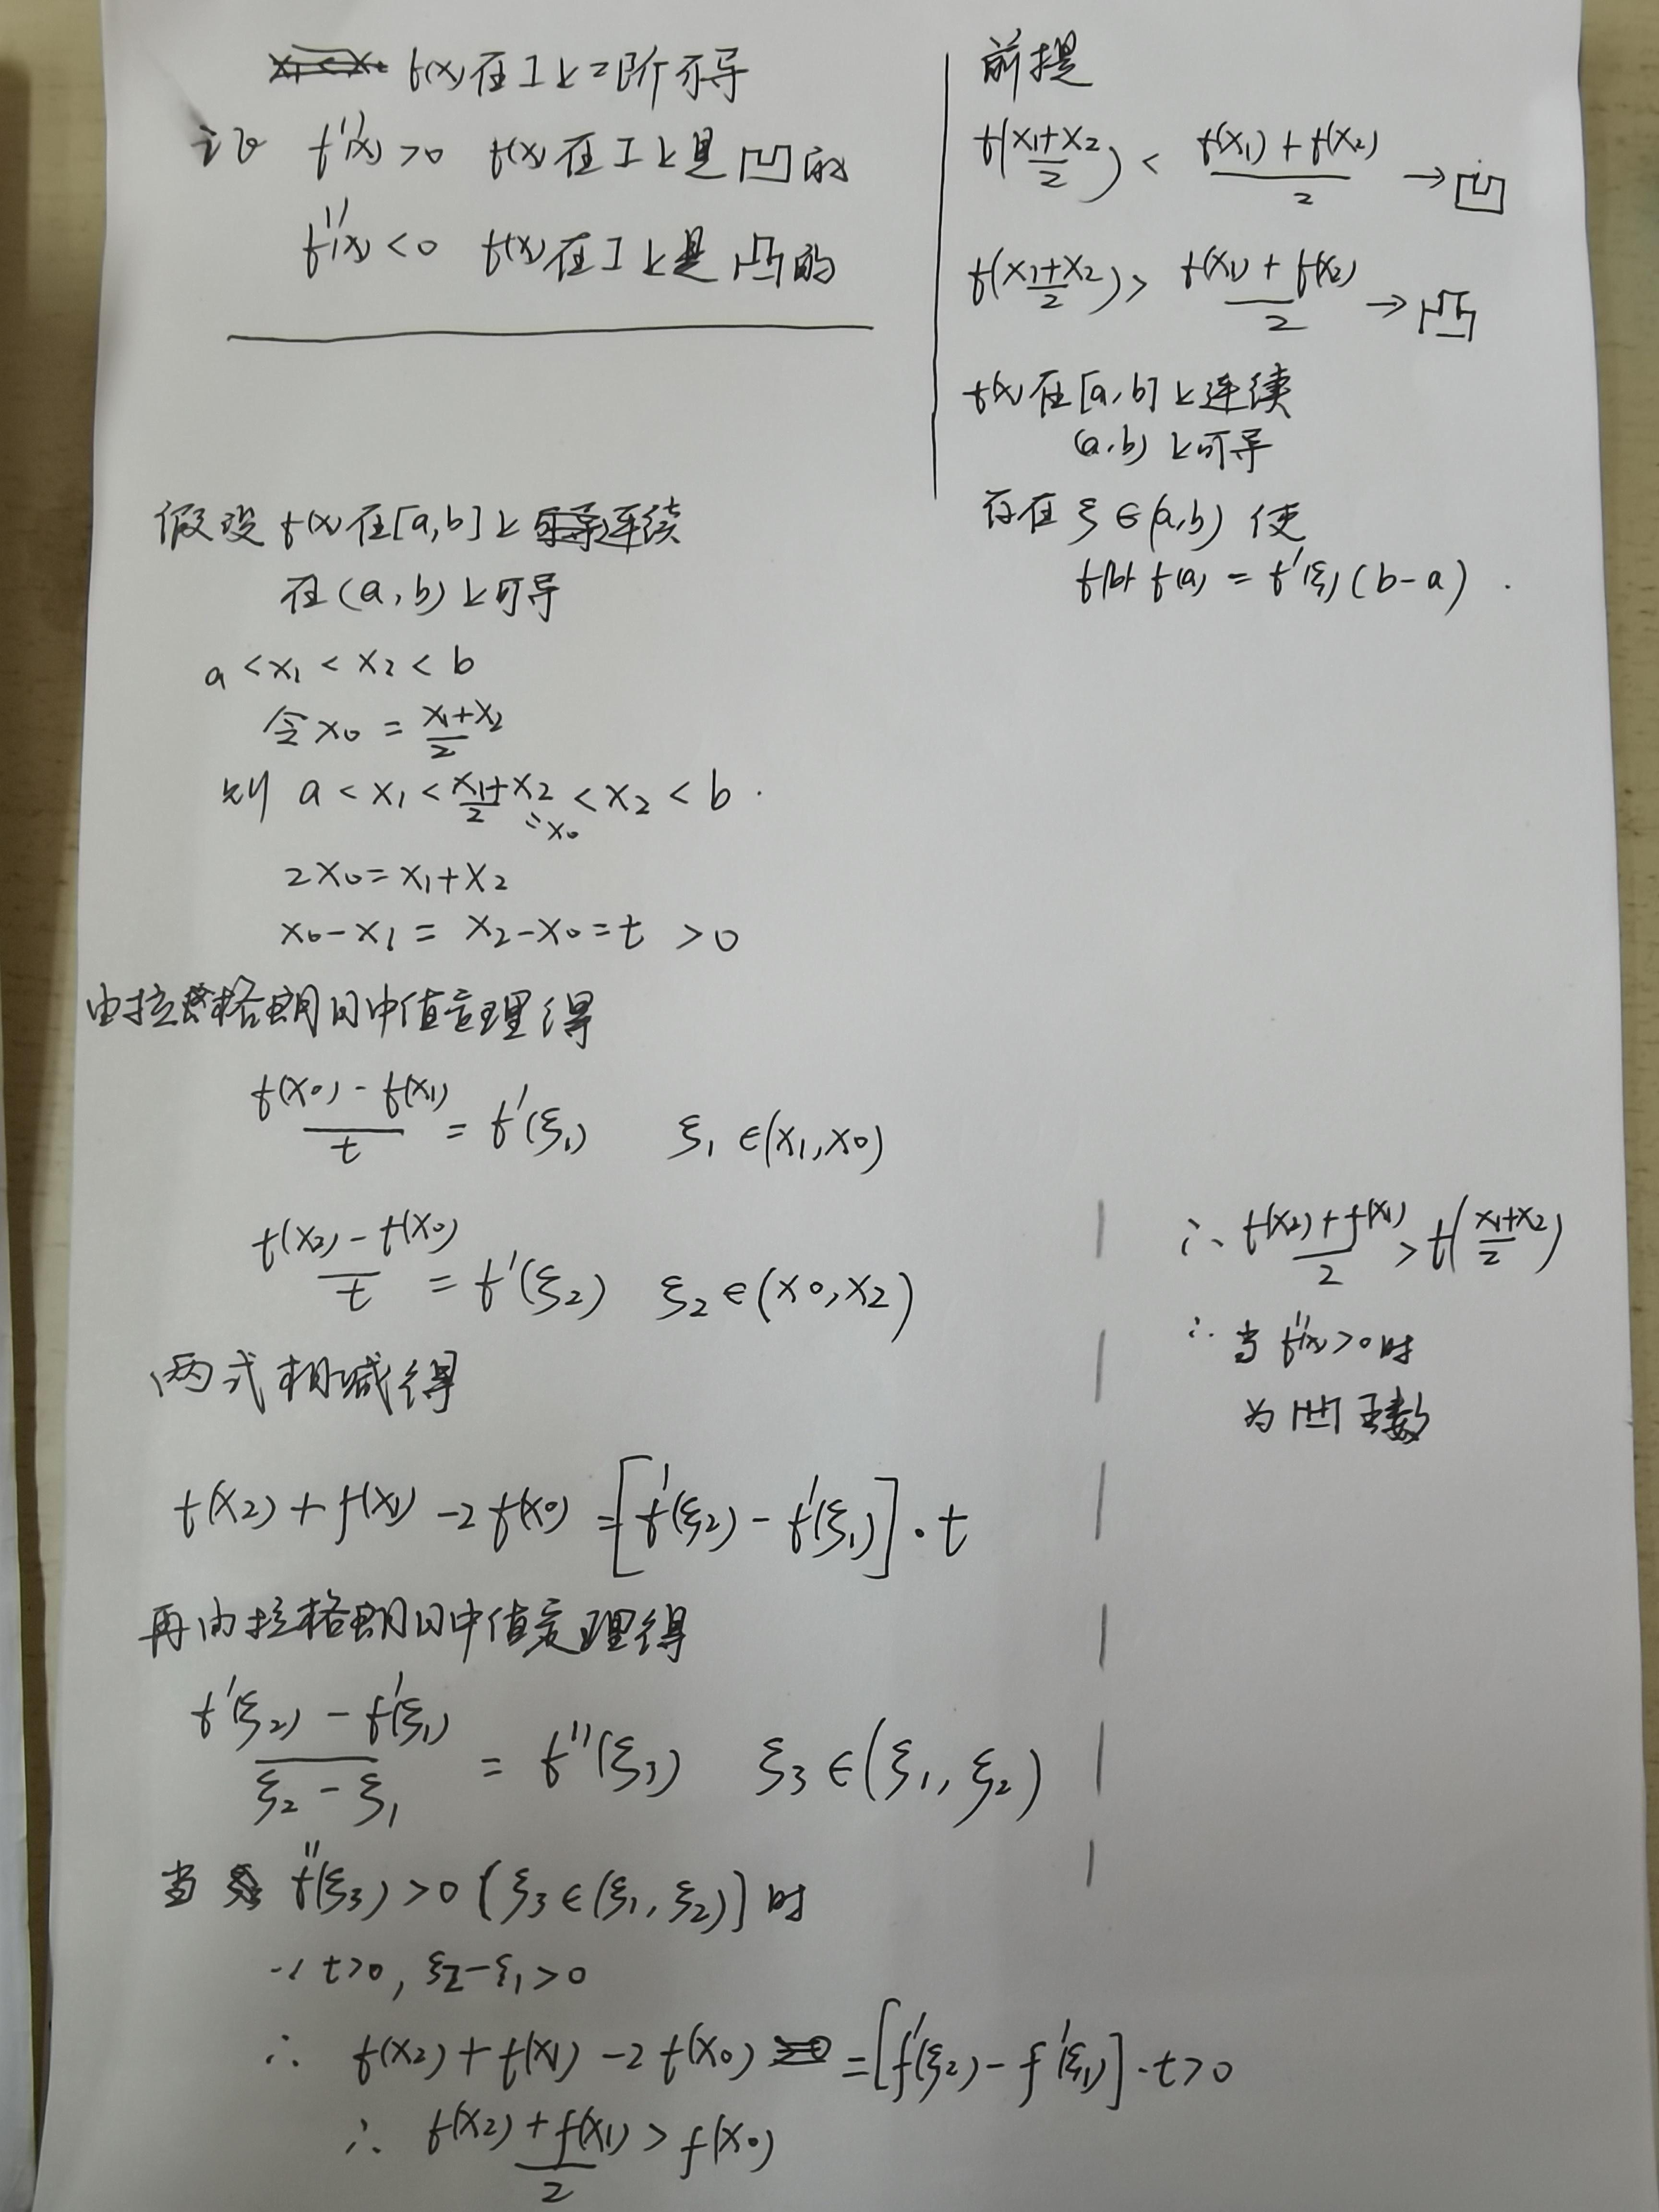 f(x)在I上二阶可导
证 f''(x)>0 f(x)在I上是凹的
f''(x)<0 f(x)在I上是凸的
前提
f(x₁+x₂/2) < f(x₁)+f(x₂)/2 →凹
f(x₁+x₂/2) > f(x₁)+f(x₂)/2 →凸
f(x)在[a,b]上连续
(a,b)上可导
存在ξ∈(a,b) 使
f(b)-f(a)=f'(ξ)(b-a).
假设f(x)在[a,b]上连续
在(a,b)上可导
a<x₁<x₂<b
令x₀=x₁+x₂/2
则 a<x₁<x₁+x₂/2<x₂<b.
=x₀
2x₀=x₁+x₂
x₀-x₁=x₂-x₀=t>0
由拉格朗日中值定理得
f(x₀)-f(x₁)/t=f'(ξ₁) ξ₁∈(x₁,x₀)
f(x₂)-f(x₀)/t=f'(ξ₂) ξ₂∈(x₀,x₂)
两式相减得
f(x₂)+f(x₁)-2f(x₀)=[f'(ξ₂)-f'(ξ₁)]·t
再由拉格朗日中值定理得
f'(ξ₂)-f'(ξ₁)/ξ₂-ξ₁=f''(ξ₃) ξ₃∈(ξ₁,ξ₂)
当 f''(ξ₃)>0[ξ₃∈(ξ₁,ξ₂)]时
∵t>0,ξ₂-ξ₁>0
∴ f(x₂)+f(x₁)-2f(x₀)=[f'(ξ₂)-f'(ξ₁)]·t>0
∴ f(x₂)+f(x₁)/2>f(x₀)
∴ f(x₂)+f(x₁)/2>f(x₁+x₂/2)
∴当f''(x)>0时
为凹函数